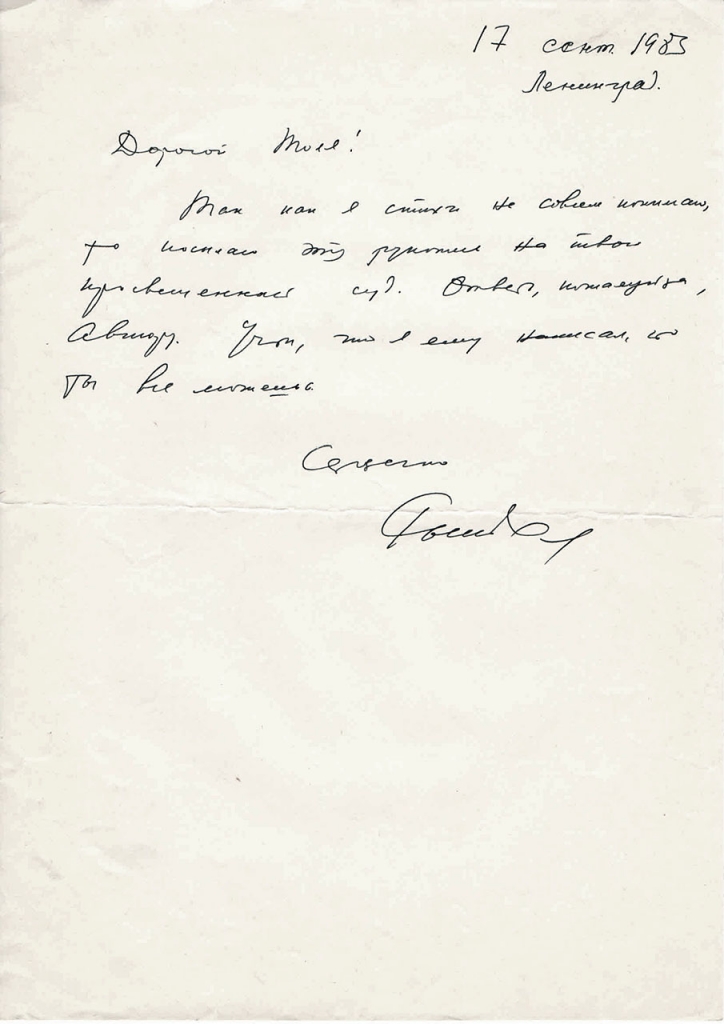 17 сент. 1983
Ленинград.
Дорогой Толя!
Так как я стихи не совсем понимаю,
то посылаю эту рукопись на твой
просвещенный суд. Ответь, пожалуйста,
Автору. Учти, что я ему написал, что
ты все можешь.
Сердечно